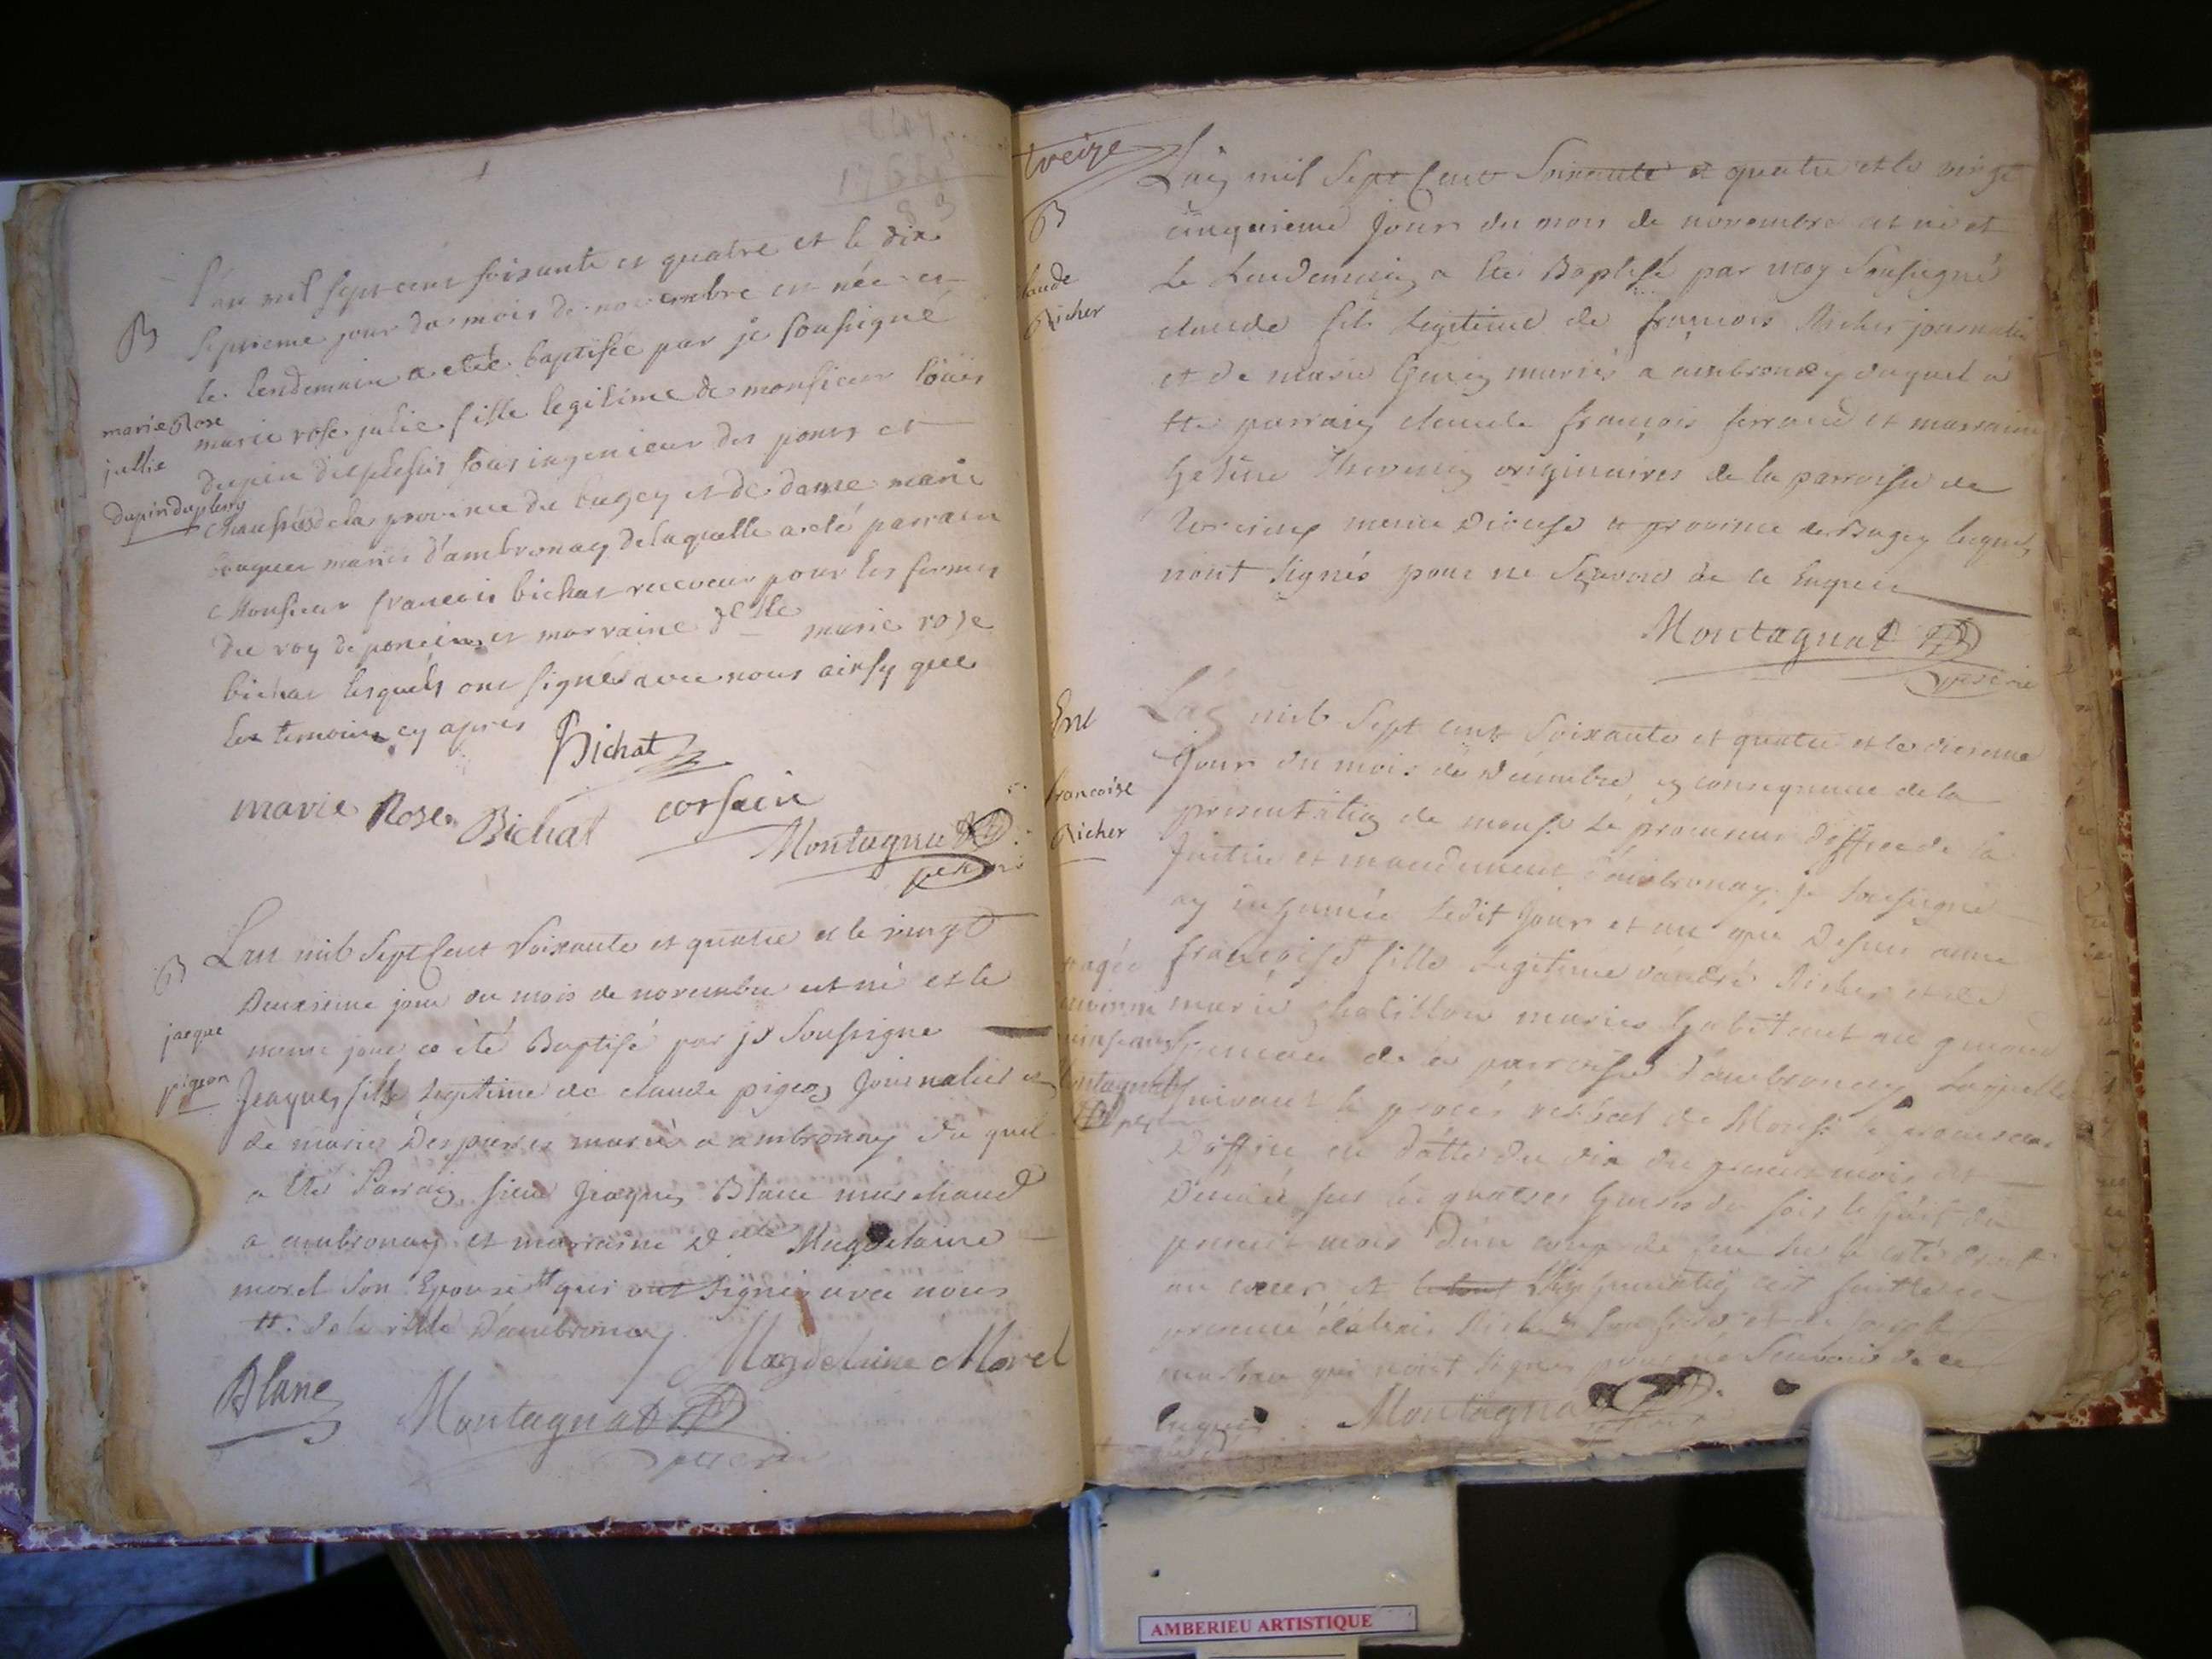 B
marie Rose
jullie
dupin duplessy
L'an mil sept cent soixante et quatre et le dix
septieme jour du mois de novembre est née et
le lendemain a eté baptisée par je soussigné
marie rose julie fille legitime de monsieur loüis
dupin duplessis sous ingenieur des ponts et
chaussées de la province du bugey et de dame marie
mariés d'ambronay de laquelle a eté parrain
Monsieur francois bichat receveur pour les fermes
du roy de poncin et marraine delle marie rose
bichat lesquels ont signés avec nous ainsy que
les temoins cy apres
Bichat
marie Rose Bichat
corsain
Montagnat
B
jacque
pigeon
Lan mil Sept Cent Soixante et quatre et le vingt
Deuxieme jour du mois de novembre est né et le
meme jour a été Baptisé par je Soussigne
Jacques fils Legitime de claude pigeon Journalier et
de marie Despierres mariés a ambronay du quel
a Eté Parrain sieur Jacques Blanc marchand
a ambronay et marraine Delle Magdelaine
morel Son Epouse tt qui ont signés avec nous
tt. de la ville D'ambronay
Magdelaine Morel
Blanc
Montagnat
treize
B
laude
Richer
Lan mil Sept Cent Soixante et quatre et le vingt
cinquieme Jour du mois de novembre est né et
Le Lendemain a Eté Baptisé par moy Soussigné
claude fils Legitime de françois Richer journalier
et de marie Guin mariés a ambronay duquel a
Eté parrain claude françois ferrand et marraine
Thevenin originaires de la parroisse de
meme Diocese et province de Bugey lesquels
n'ont Signés pour ne Sçavoir de ce Enquis
Montagnat
Ent
francoise
Richer
agée
environ
Montagnat
Lan mil Sept cent Soixante et quatre et le
Jour du mois de Decembre, en consequence de la
presentation de monsr. Le procureur d'office de la
Justice et mandement d'ambronay je Soussigné
ay inhumée Ledit Jour et an que Dessus
françoise fille Legitime d'andré Richer et de
marie chatillon mariés habitant au
de la parroisse d'ambronay Laquelle
Suivant le procés verbal de Monsr. le procureur
D'office en datte du dix du present mois est
Decedée sur les quatres heures du soir le huit du
present mois D'un coup de feu sur le coté droit
au coeur et L'inhumation est faitte en
presence Richer et de joseph
qui n'ont signés pour ne Scavoir de ce
Enquis
Montagnat
AMBERIEU ARTISTIQUE